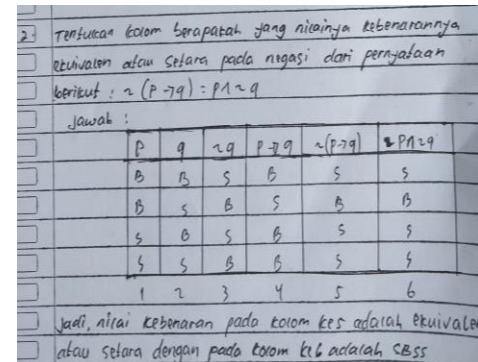 2. Tentukan kolom berapakah yang nilainya kebenarannya
ekuivalen atau setara pada negasi dari pernyataan
berikut : ~ (P→q) = P∧~q
Jawab :
P q ~q P→q ~(P→q) ~P∧~q
B B S B S S
B S B S B B
S B S B S S
S S B B S S
1 2 3 4 5 6
Jadi, nilai kebenaran pada kolom ke5 adalah ekuivale
atau setara dengan pada kolom ke6 adalah SBSS